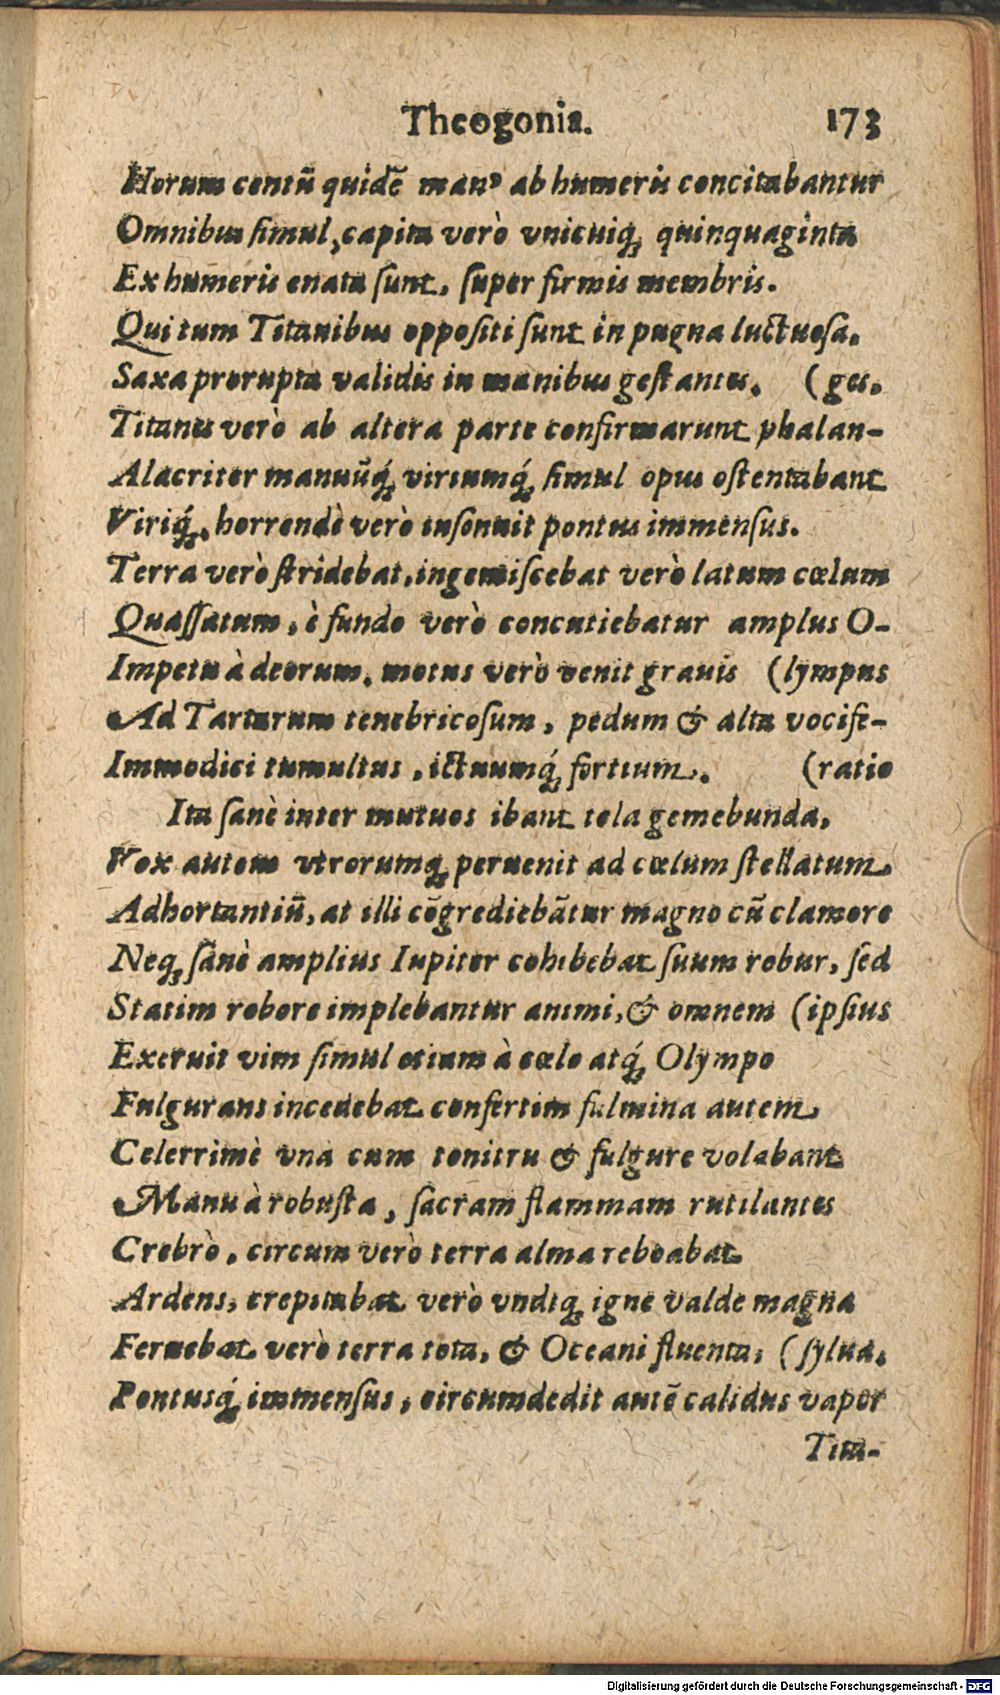 Theogonia. 173
Horum centū quidē manꝰ ab humeris concitabantur
Omnibus simul, capita verò vnicuiq; quinquaginta
Ex humeris enata sunt, super firmis membris.
Qui tum Titanibus oppositi sunt in pugna luctuosa.
Saxa prerupta validis in manibus gestantes. (ges.
Titanes verò ab altera parte confirmarunt phalan-
Alacriter manuūq́; viriumq́; simul opus ostentabant
Viriq́;. horrendè verò insonuit pontus immensus.
Terra verò stridebat, ingemiscebat verò latum cœlum
Quassatum, è fundo verò concutiebatur amplus O-
Impetu à deorum. motus verò venit grauis (lympus
Ad Tartarum tenebricosum, pedum & alta vocife-
Immodici tumultus, ictuumq́; fortium. (ratio
Ita sanè inter mutuos ibant tela gemebunda,
Vox autem vtrorumq; peruenit ad cœlum stellatum.
Adhortantiū, at illi cōgrediebātur magno cū clamore
Neq; sanè amplius Iupiter cohibebat suum robur, sed
Statim robore implebantur animi, & omnem (ipsius
Exeruit vim simul etiam à cœlo atq́; Olympo
Fulgurans incedebat confertim fulmina autem,
Celerrimè vna cum tonitru & fulgure volabant
Manu à robusta, sacram flammam rutilantes
Crebrò, circum verò terra alma reboabat
Ardens, crepitabat verò vndiq; igne valde magna
Feruebat verò terra tota, & Oceani fluenta, (sylua.
Pontusq́; immensus, circumdedit autē calidus vapor
Tita-
Digitalisierung gefördert durch die Deutsche Forschungsgemeinschaft - DFG